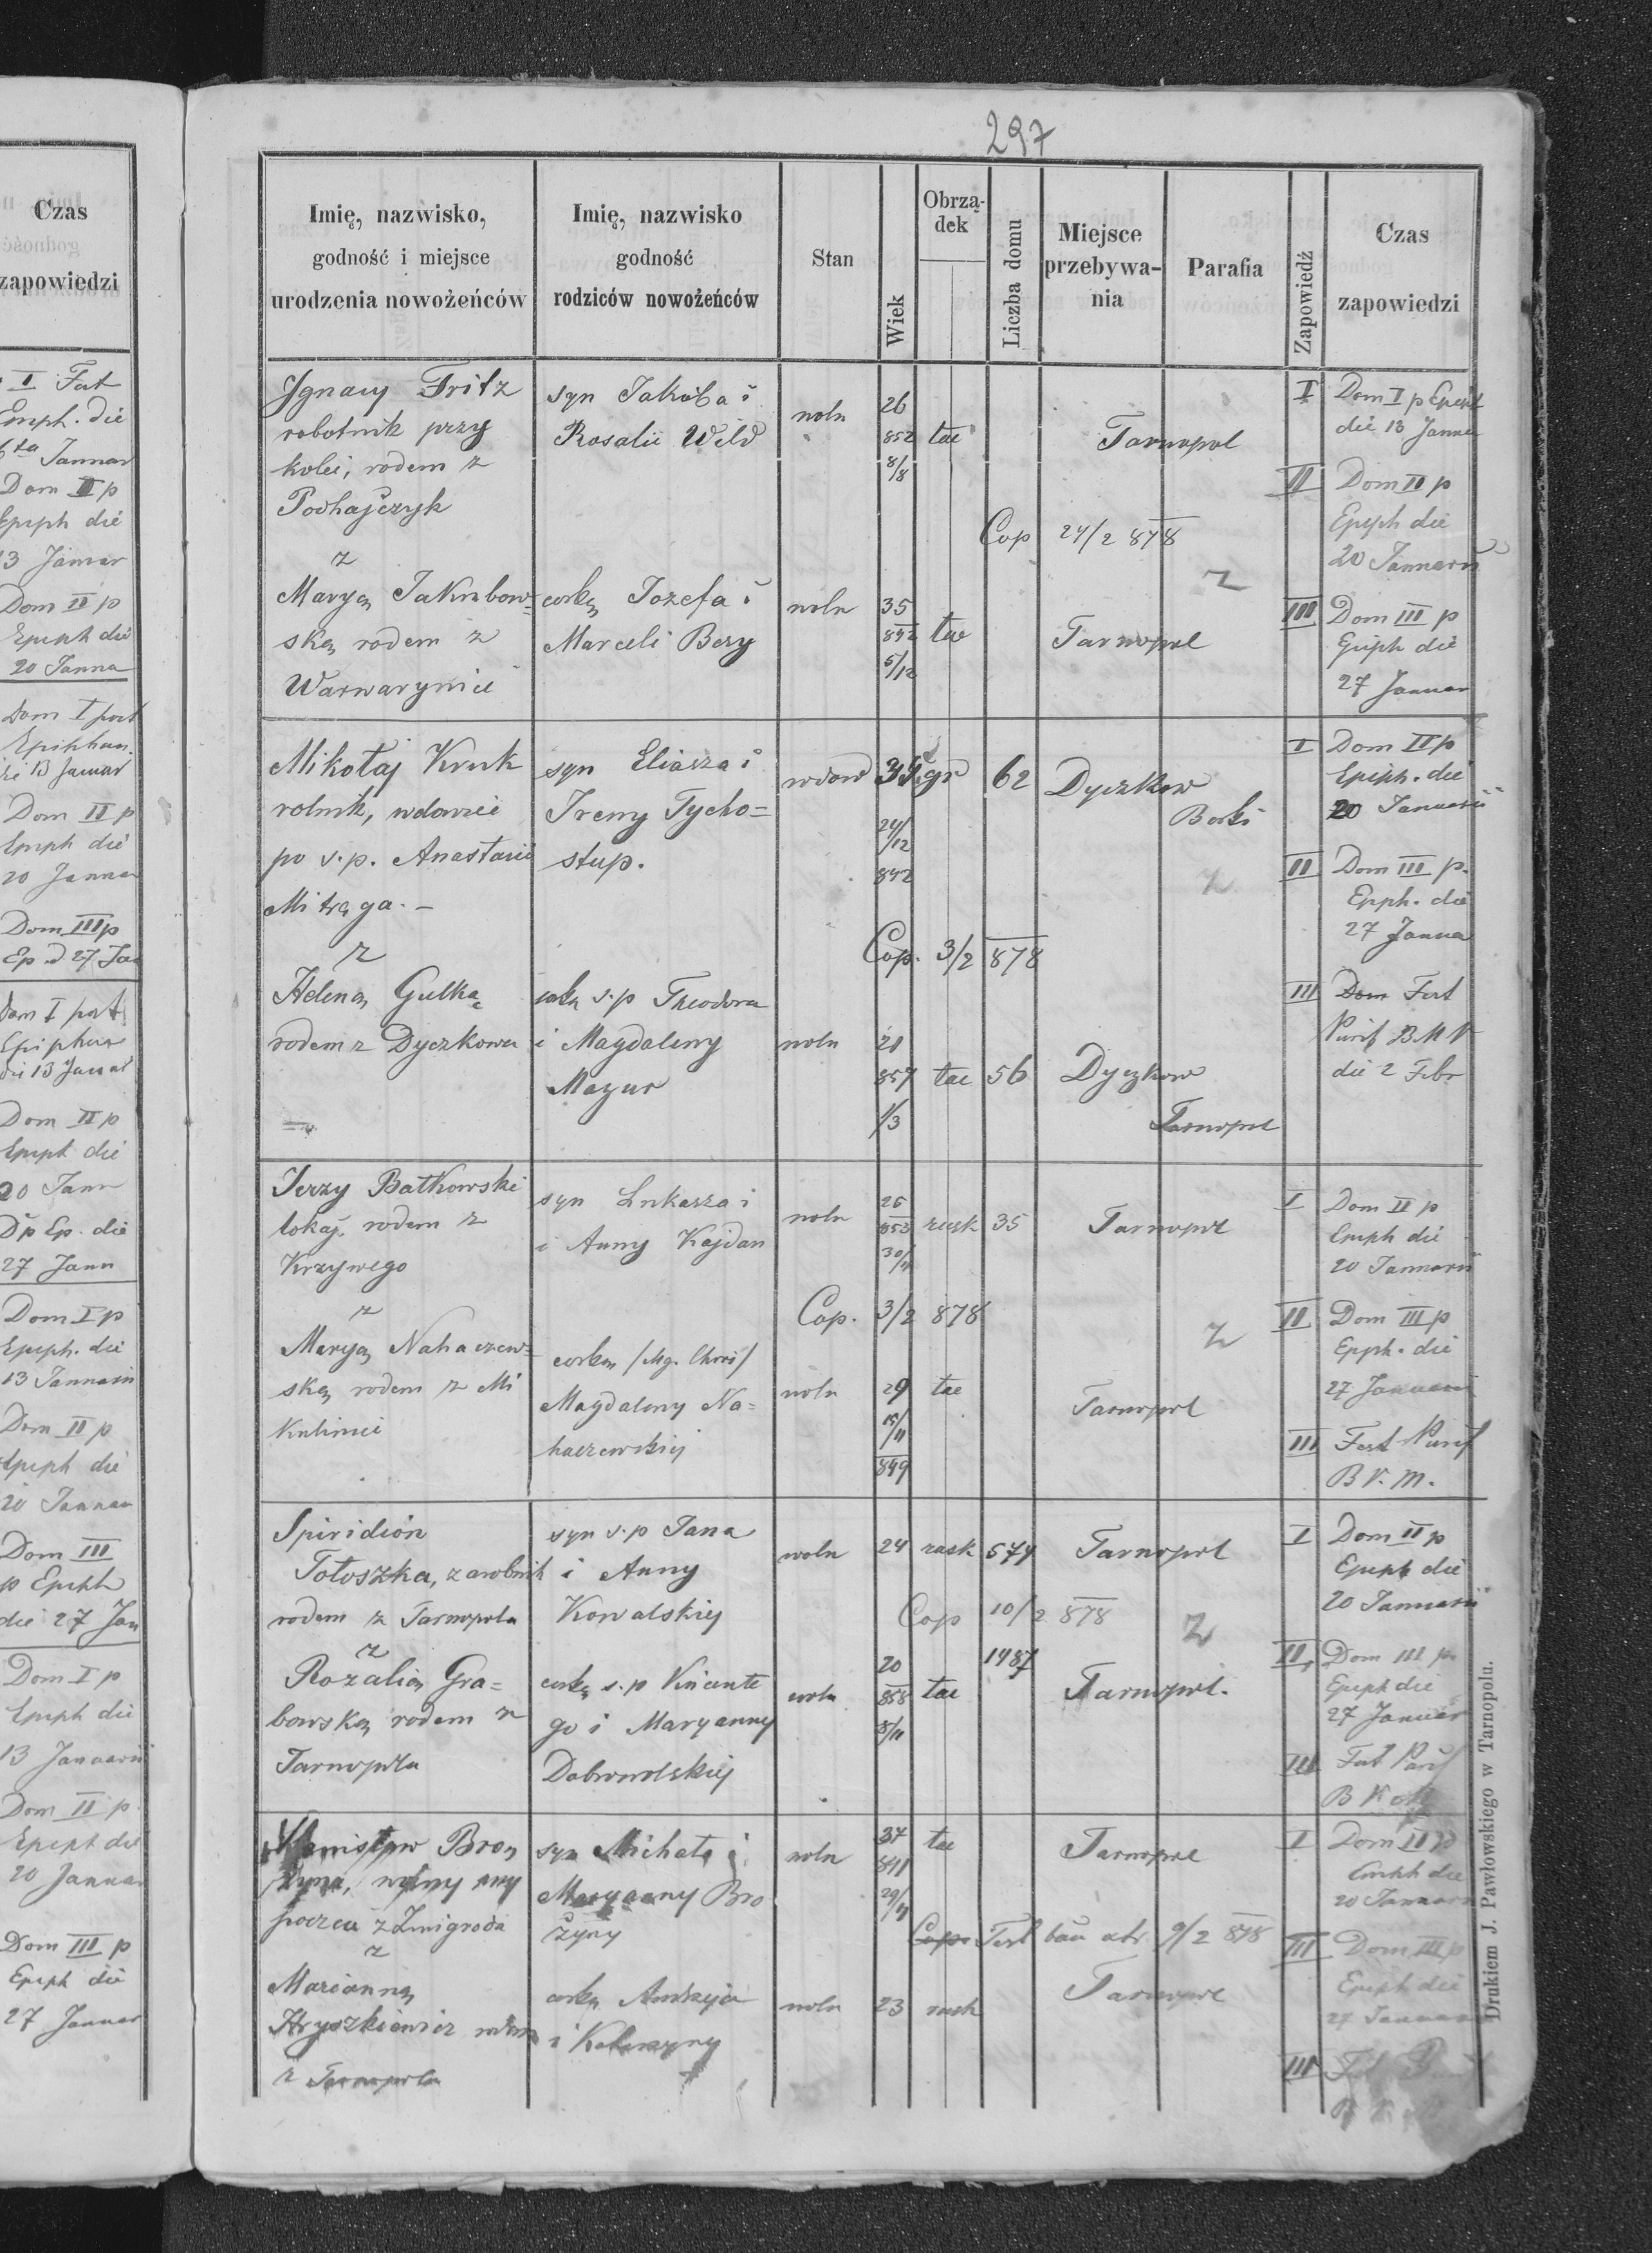 297
Czas
zapowiedzi
I Fest
Epiph. die
6ta Januar
Dom II p
Epiph die
13 Januar
Dom II p
Epiph die
20 Janua
Dom I post
Epiphan.
die 13 Januar
Dom II p
Epiph die
20 Januar
Dom III p
Ep. d 27 Jan
Dom I post
Epiphan
die 13 Januar
Dom II p
Epiph die
20 Janu
D p Ep. die
27 Janu
Dom I p
Epiph. die
13 Januarii
Dom II p
Epiph die
20 Januar
Dom III
p Epiph
die 27 Jan
Dom I p
Epiph die
13 Januarii
Dom II p
Epiph die
20 Januar
Dom III p
Epiph die
27 Januar
Imię, nazwisko,
godność i miejsce
urodzenia nowożeńców
Imię, nazwisko
godność
rodziców nowożeńców
Stan
Wiek
Obrzą-
dek
Liczba domu
Miejsce
przebywa-
nia
Parafia
Zapowiedź
Czas
zapowiedzi
Ignacy Fritz
robotnik przy
kolei, rodem z
Podhajczyk
z
Maryą Jakubow-
ską rodem z
Warwaryniec
syn Jakóba i
Rosalii Weld
corką Jozefa i
Marceli Bery
woln
26
852
8/8
tac
Tarnopol
Cop 24/2 878
z
woln
35
842
5/12
tac
Tarnopol
I Dom I p Epiph
die 13 Januar
II Dom II p
Epiph die
20 Januarii
III Dom III p
Epiph die
27 Januar
Mikołaj Kruk
rolnik, wdowiec
po ś.p. Anastazii
Mitręga. -
z
Heleną Gulką
rodem z Dyczkowa
syn Eliasza i
Ireny Tycho=
stup.
corką ś.p Theodora
i Magdaleny
Mazur
wdow
35
24/12
842
gr
62
Dyczkow
Borki
z
Cop. 3/2 878
woln
21
857
1/3
tac
56
Dyczkow
Tarnopol
I Dom II p
Epiph. die
20 Januarii
II Dom III p.
Epph. die
27 Janua
III Dom Fest
Purif B.M V
die 2 Febr
Jerzy Batkowski
lokaj, rodem z
Krzywego
z
Maryą Nahaczew=
ską rodem z Mi
Kuliniec
syn Łukasza i
i Anny Kajdan
corką
Magdaleny Na=
haczewskiej
woln
25
853
30/11
rusk
35
Tarnopol
Cop. 3/2 878
z
woln
29
15/11
849
tac
Tarnopol
I Dom II p
Epiph die
20 Januarii
II Dom III p
Epph. die
27 Januarii
III Fest Purif
B V. M.
Spiridion
Tołoszka, zarobnik
rodem z Tarnopola
z
Rozalią Gra=
bowską rodem z
Tarnopola
syn ś.p Jana
i Anny
Kowalskiej
corką ś.p Vincente
go i Maryanny
Dobrowolskiej
woln
24
rusk
574
Tarnopol
Cop 10/2 878
z
woln
20
858
8/11
tac
1487
Tarnopol.
I Dom II p
Epiph die
20 Januarii
II Dom III p
Epiph die
27 Januar
III Fest Purif
B V M
Stanisław Bro
żyna, woźny przy
poczcie z Żmigroda
z
Marianną
Hryszkiewicz rodem
z Tarnopola
syn Michała i
Maryanny Bro
żyny
corką Andrzeja
i Katarzyny
woln
37
841
29/11
tac
Tarnopol
Cop. Test 9/2 878
woln
23
rusk
Tarnopol
I Dom II p
Epiph die
20 Januarii
III Dom III p
Epiph die
27 Januar
III
Drukiem J. Pawłowskiego w Tarnopolu.